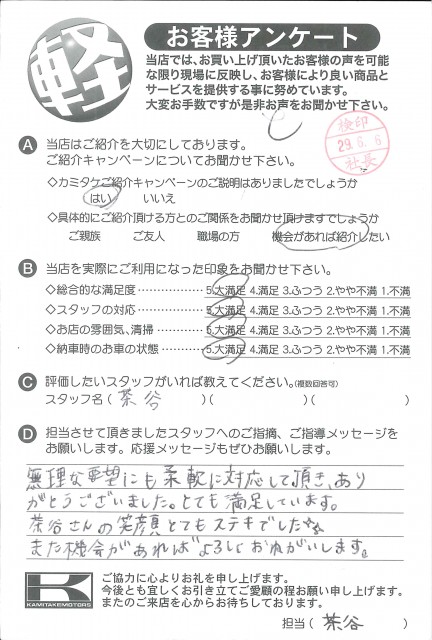 軽
お客様アンケート
当店では、お買い上げ頂いたお客様の声を可能
な限り現場に反映し、お客様により良い商品と
サービスを提供する事に努めています。
大変お手数ですが是非お声をお聞かせ下さい。
検印
29.6.6
社長
A 当店はご紹介を大切にしております。
ご紹介キャンペーンについてお聞かせ下さい。
◇カミタケご紹介キャンペーンのご説明はありましたでしょうか
はい いいえ
◇具体的にご紹介頂ける方とのご関係をお聞かせ頂けますでしょうか
ご親族 ご友人 職場の方 機会があれば紹介したい
B 当店を実際にご利用になった印象をお聞かせ下さい。
◇総合的な満足度 ………… 5.大満足 4.満足 3.ふつう 2.やや不満 1.不満
◇スタッフの対応 ………… 5.大満足 4.満足 3.ふつう 2.やや不満 1.不満
◇お店の雰囲気、清掃 ………… 5.大満足 4.満足 3.ふつう 2.やや不満 1.不満
◇納車時のお車の状態 ………… 5.大満足 4.満足 3.ふつう 2.やや不満 1.不満
C 評価したいスタッフがいれば教えてください。(複数回答可)
スタッフ名( 茶谷 )( )( )
D 担当させて頂きましたスタッフへのご指摘、ご指導メッセージを
お願いします。応援メッセージもぜひお願いします。
無理な要望にも柔軟に対応して頂き、あり
がとうございました。とても満足しています。
茶谷さんの笑顔とてもステキでした
また機会があればよろしくおねがいします。
K
KAMITAKEMOTORS
ご協力に心よりお礼を申し上げます。
今後とも宜しくお引き立てご愛顧の程お願い申し上げます。
またのご来店を心からお待ちしております。
担当( 茶谷 )